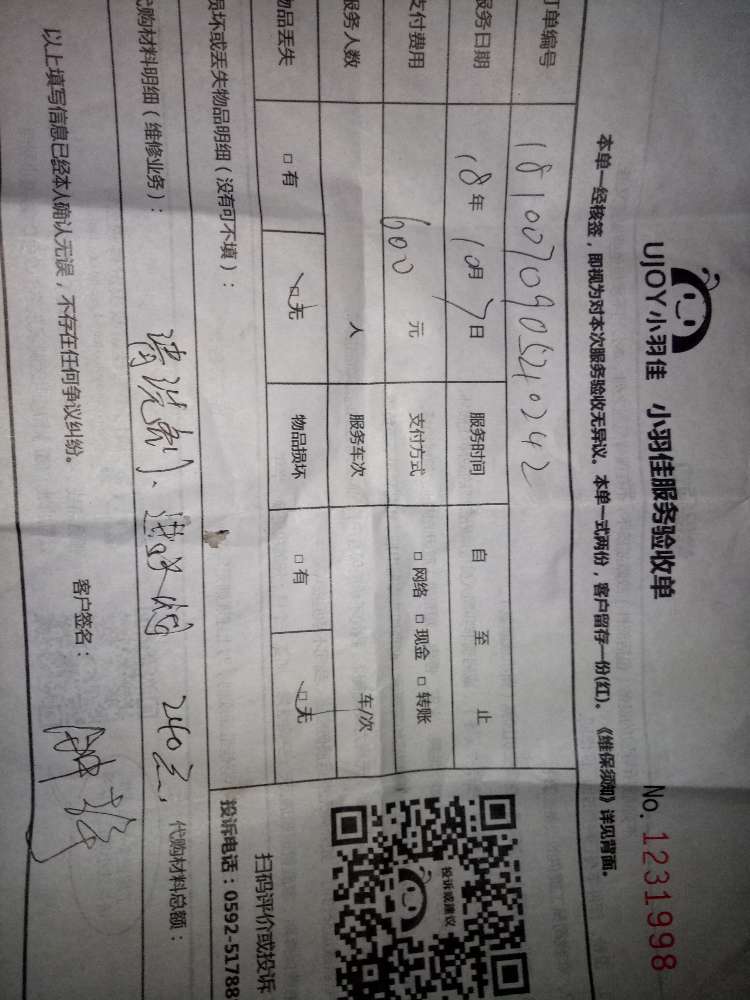 UJOY小羽佳 小羽佳服务验收单 No. 1231998
本单一经核签，即视为对本次服务验收无异议。本单一式两份，客户留存一份(红)。《维保须知》详见背面。
订单编号 1810070905240242
服务日期 18年10月7日 服务时间 自 至 止
支付费用 600元 支付方式 □网络 □现金 □转账
服务人数 人 服务车次 车/次
物品丢失 □有 □无 物品损坏 □有 □无
损坏或丢失物品明细（没有可不填）：
代购材料明细（维修业务）： 清洗剂、 240元, 代购材料总额：
以上填写信息已经本人确认无误，不存在任何争议纠纷。 客户签名：
投诉或建议
扫码评价或投诉
投诉电话：0592-51788